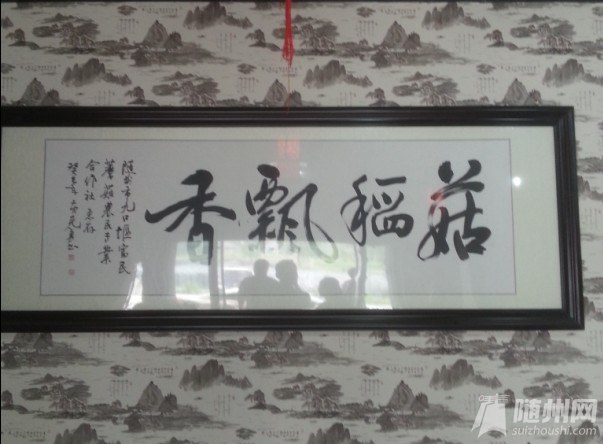 菇稻飘香
随州市九口堰富民
蘑菇农民专业
合作社惠存
癸巳年
随州网
suizhoushi.com